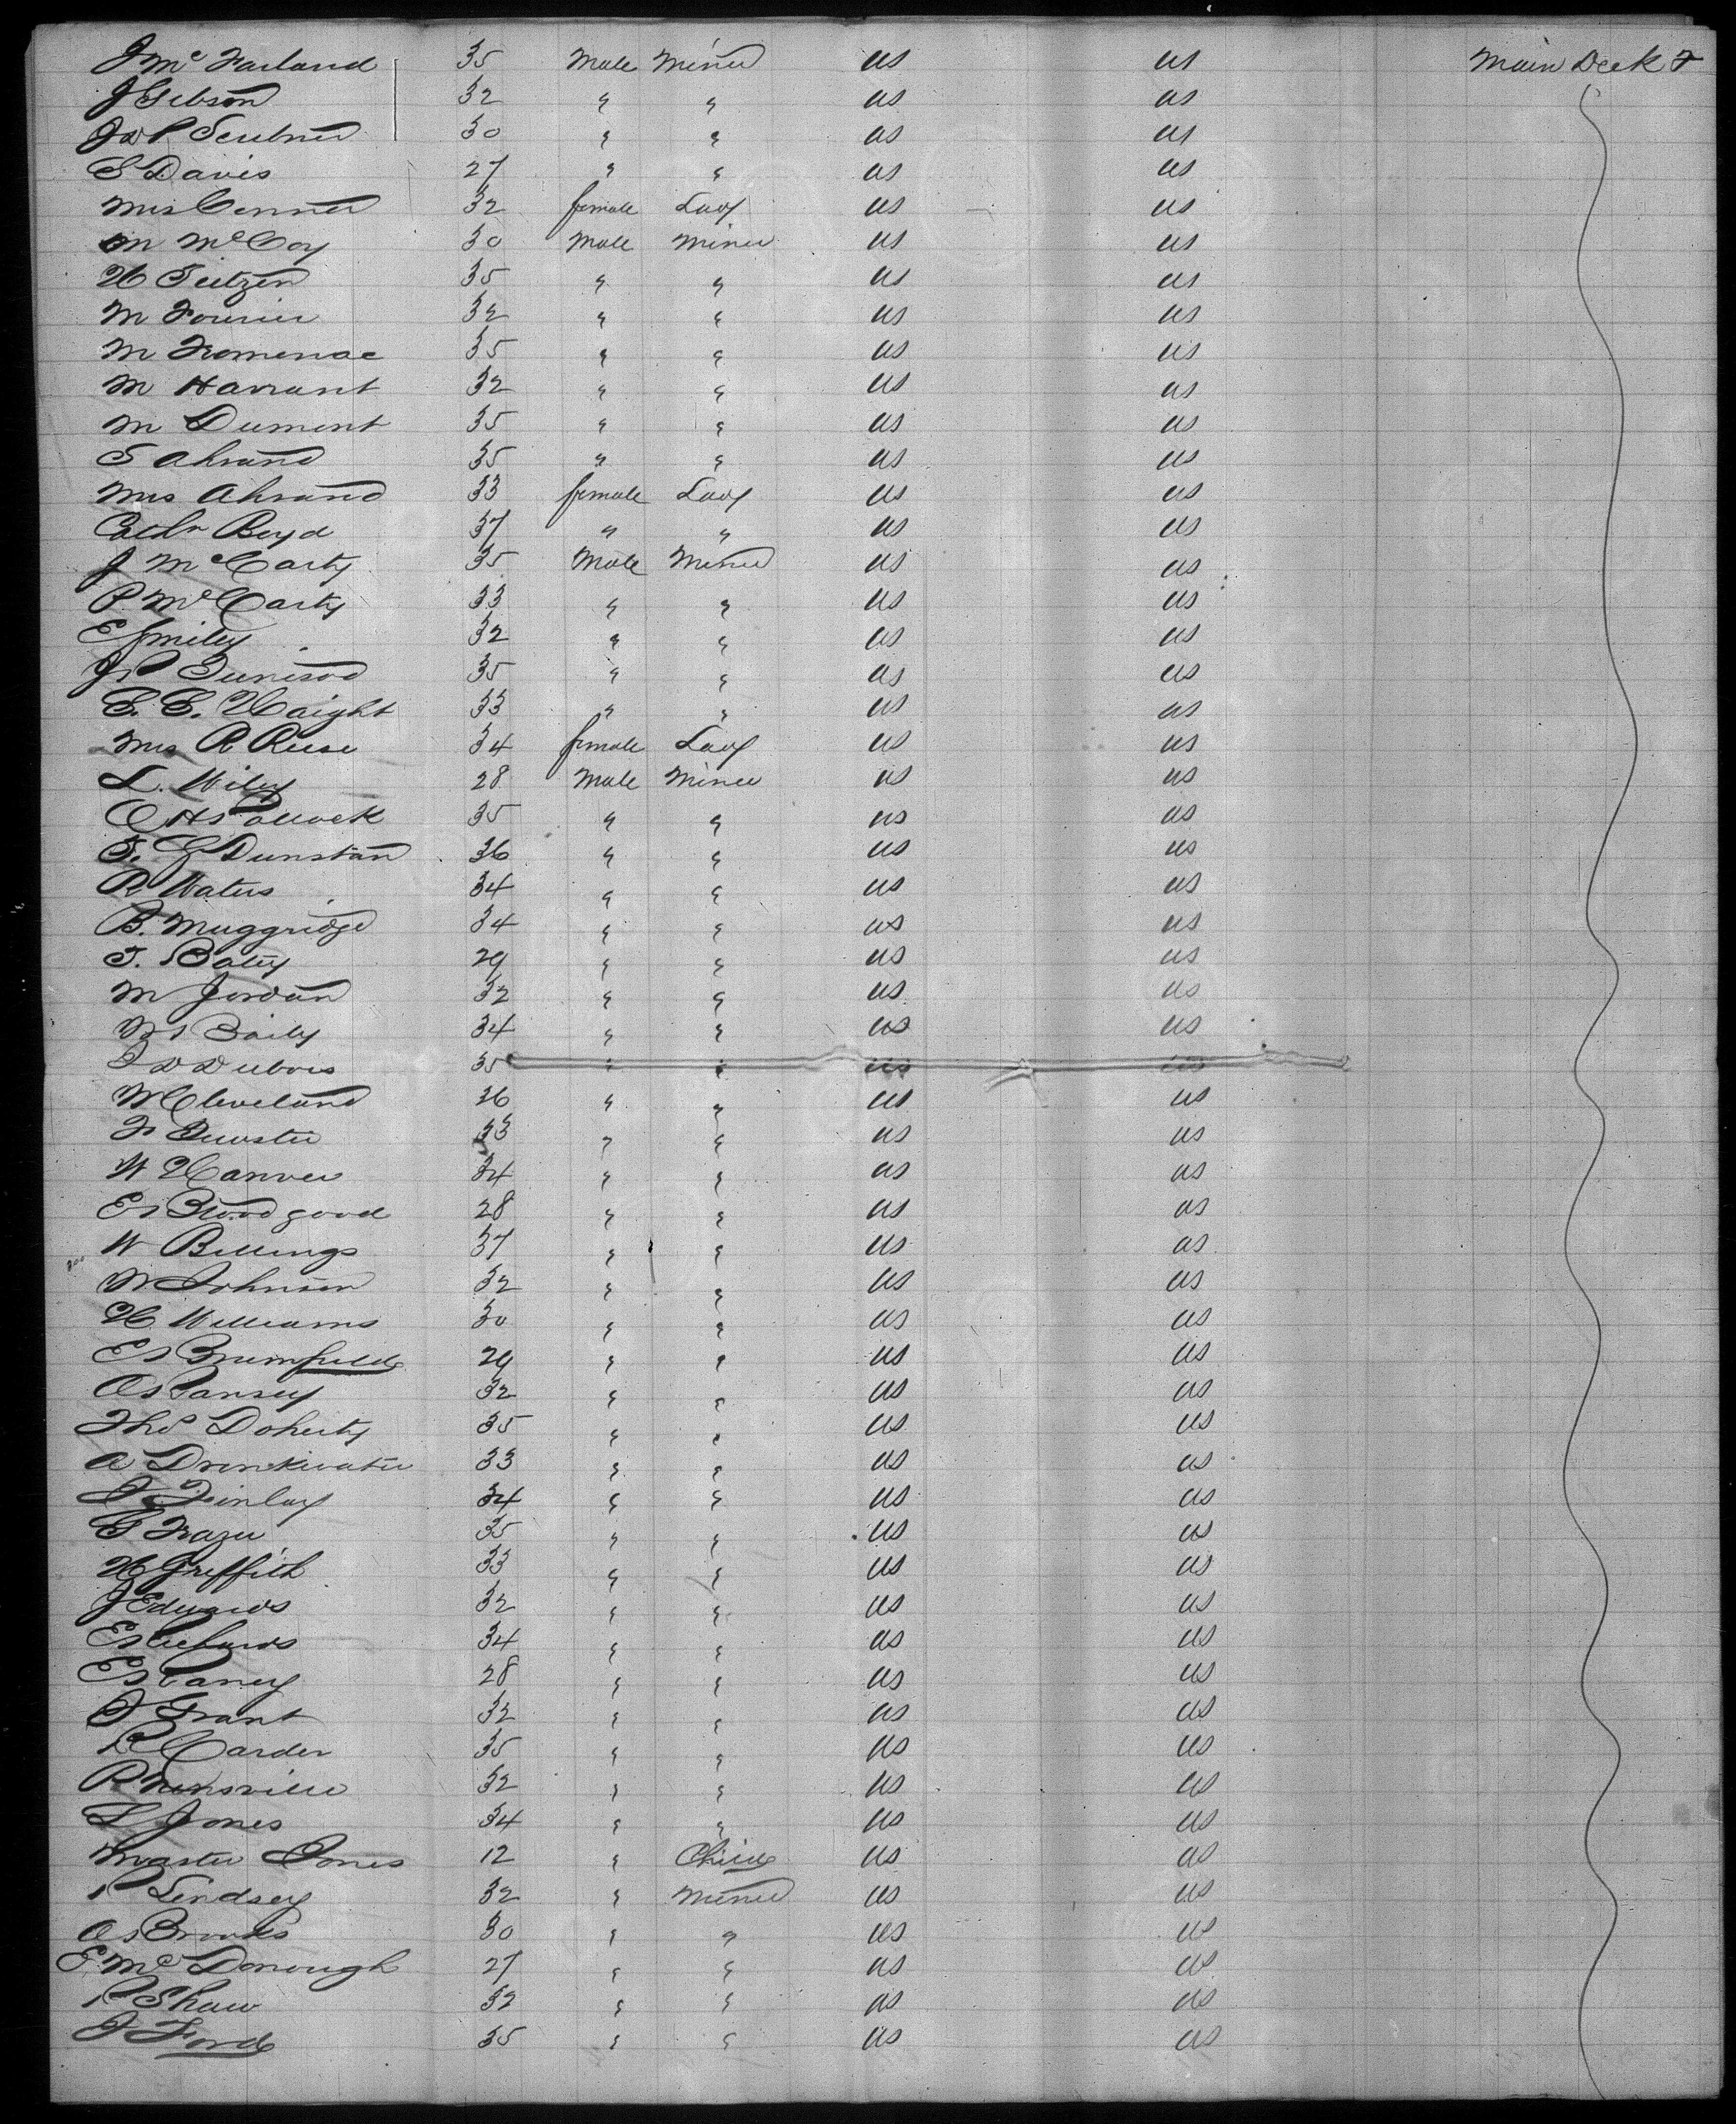 J McFarland 35 Male Miner US US Main Deck F
J Gibson 32 " " US US
J & P Scribner 30 " " US US
S Davis 27 " " US US
Mrs Conner 32 female Lady US US
M McCoy 30 Male Miner US US
H Seitzen 35 " " US US
M Fourier 32 " " US US
M Fromenac 35 " " US US
M Harrant 32 " " US US
M Dument 35 " " US US
S Ahrand 35 " " US US
Mrs Ahrand 33 female Lady US US
Cathn Boyd 37 " " US US
J McCarty 35 Male Miner US US
P McCarty 33 " " US US
E Smiley 32 " " US US
35 " " US US
E. E. Haight 33 " " US US
Mrs R Reese 34 female Lady US US
L. Wiley 28 Male Miner US US
C H Pollock 35 " " US US
T. G Dunstan 36 " " US US
R Waters 34 " " US US
B. Muggridge 34 " " US US
T. Baty 29 " " US US
M Jordan 32 " " US US
Baily 34 " " US US
J D Dubois 35 " " US US
W Cleveland 36 " " US US
33 " " US US
W Harver 34 " " US US
Bloodgood 28 " " US US
W Billings 37 " " US US
W Johnson 32 " " US US
H. Williams 30 " " US US
Brumfield 29 " " US US
32 " " US US
Thos Doherty 35 " " US US
A Drinkwater 33 " " US US
J Finlay 34 " " US US
G Frazer 35 " " US US
H Griffith 33 " " US US
J Edwards 32 " " US US
E Richards 34 " " US US
28 " " US US
J Grant 32 " " US US
R Carder 35 " " US US
32 " " US US
L Jones 34 " " US US
Master Jones 12 " Child US US
P Lindsey 32 " Miner US US
Brooks 30 " " US US
E McDonough 27 " " US US
P Shaw 32 " " US US
J Ford 35 " " US US